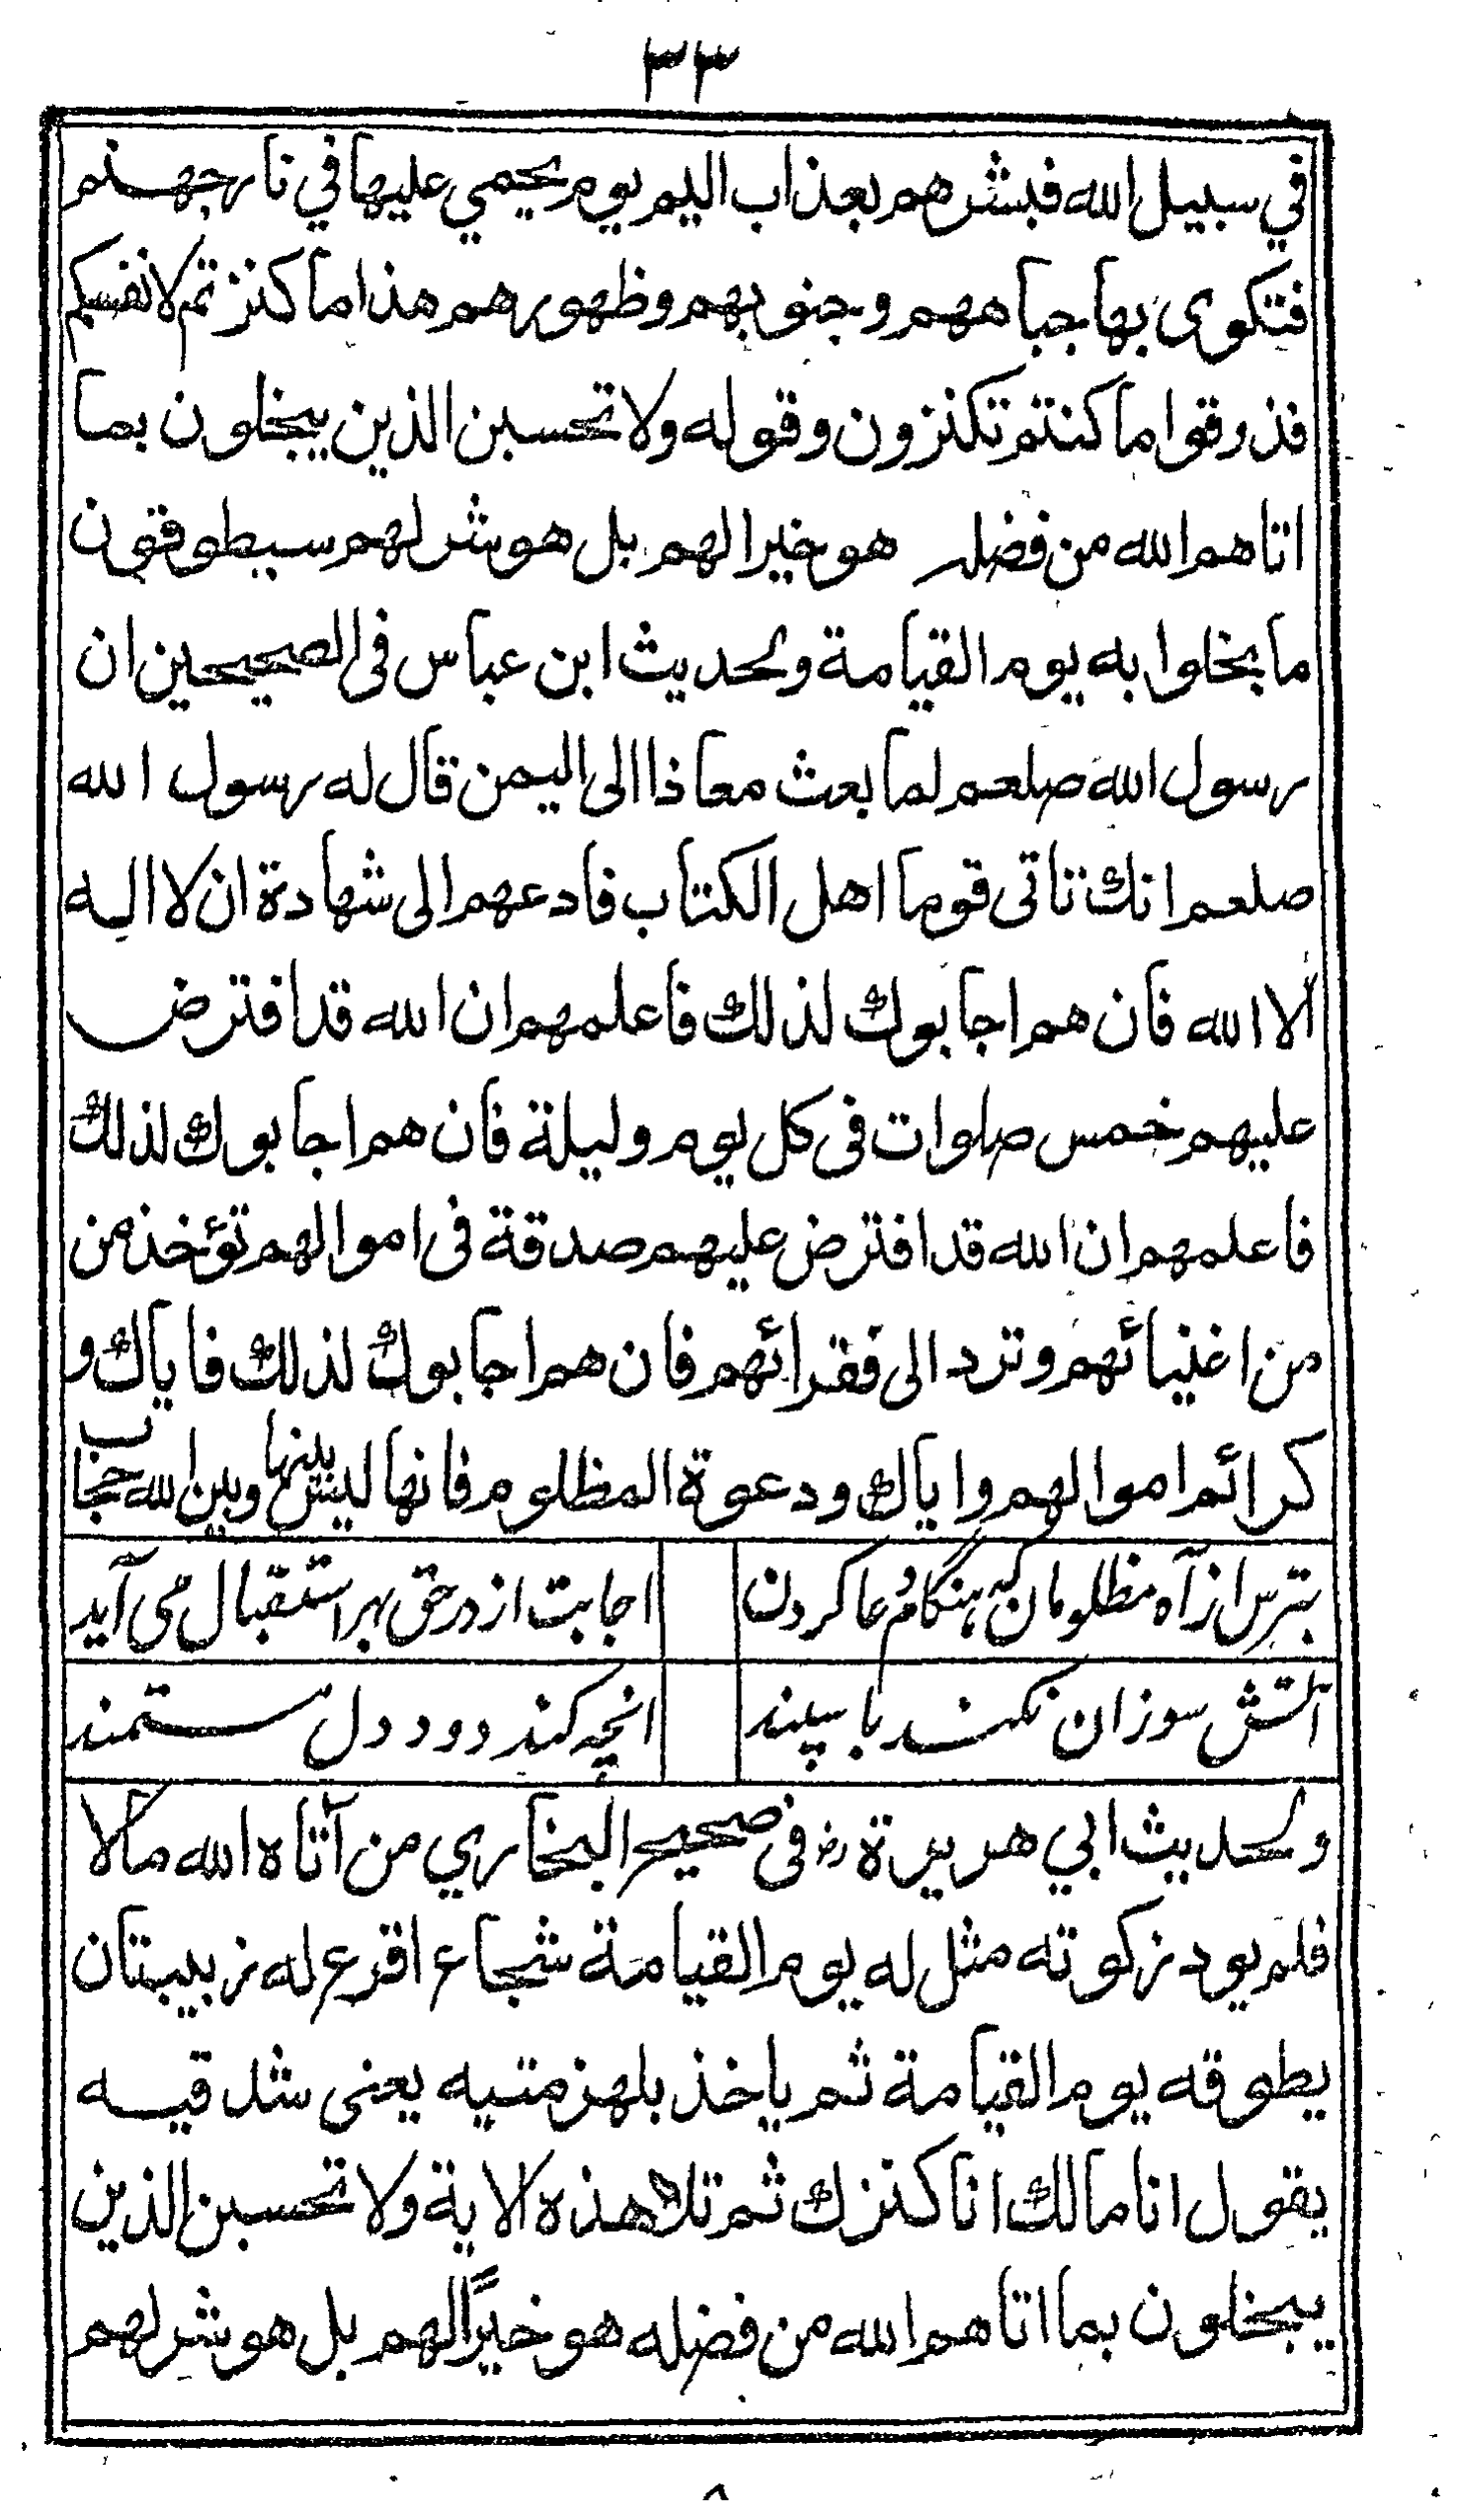 ٣٣
في سبيل الله فبشرهم بعذاب اليم يوم يحيمي عليها في نار جهنم
فتكوى بها جباههم وجنوبهم وظهورهم هذا ما كنزتم لانفسكم
فذوقوا ما كنتم تكنزون وقوله ولا تحسبن الذين يبخلون بما
اتاهم الله من فضله هو خيرا لهم بل هو شر لهم سيطوقون
ما بخلوا به يوم القيامة ولحديث ابن عباس فى الصحيحين ان
رسول الله صلعم لما بعث معاذا الى اليمن قال له رسول الله
صلعم انك تاتى قوما اهل الكتاب فادعهم الى شهادة ان لا اله
الا الله فان هم اجابوك لذلك فاعلمهم ان الله قد افترض
عليهم خمس صلوات فى كل يوم وليلة فان هم اجابوك لذلك
فاعلمهم ان الله قد افترض عليهم صدقة فى اموالهم تؤخذ من
من اغنيائهم وترد الى فقرائهم فان هم اجابوك لذلك فاياك و
كرائم اموالهم واياك ودعوة المظلوم فانها ليس بينها وبين الله حجاب
بترس از آه مظلومان که هنگام دعا کردن اجابت از در حق بهر استقبال می آید
آتش سوزان نکند با سپند انچه کند دود دل مستمند
ولحديث ابي هريرة رض فى صحيح البخاري من آتاه الله مالا
فلم يود زكوته مثل له يوم القيامة شجاع اقرع له زبيبتان
يطوقه يوم القيامة ثم ياخذ بلهزمتيه يعنى شدقيه
يقول انا مالك انا كنزك ثم تلا هذه الاية ولا تحسبن الذين
يبخلون بما اتاهم الله من فضله هو خيرًا لهم بل هو شر لهم